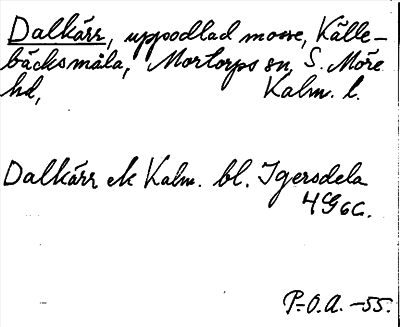 Dalkärr, uppodlad mosse, Källe-
bäcksmåla, Mortorps sn, S. Möre
hd, Kalm. l.
Dalkärr ek Kalm. bl. Igersdela
4G6c.
P.-O.A. -55.